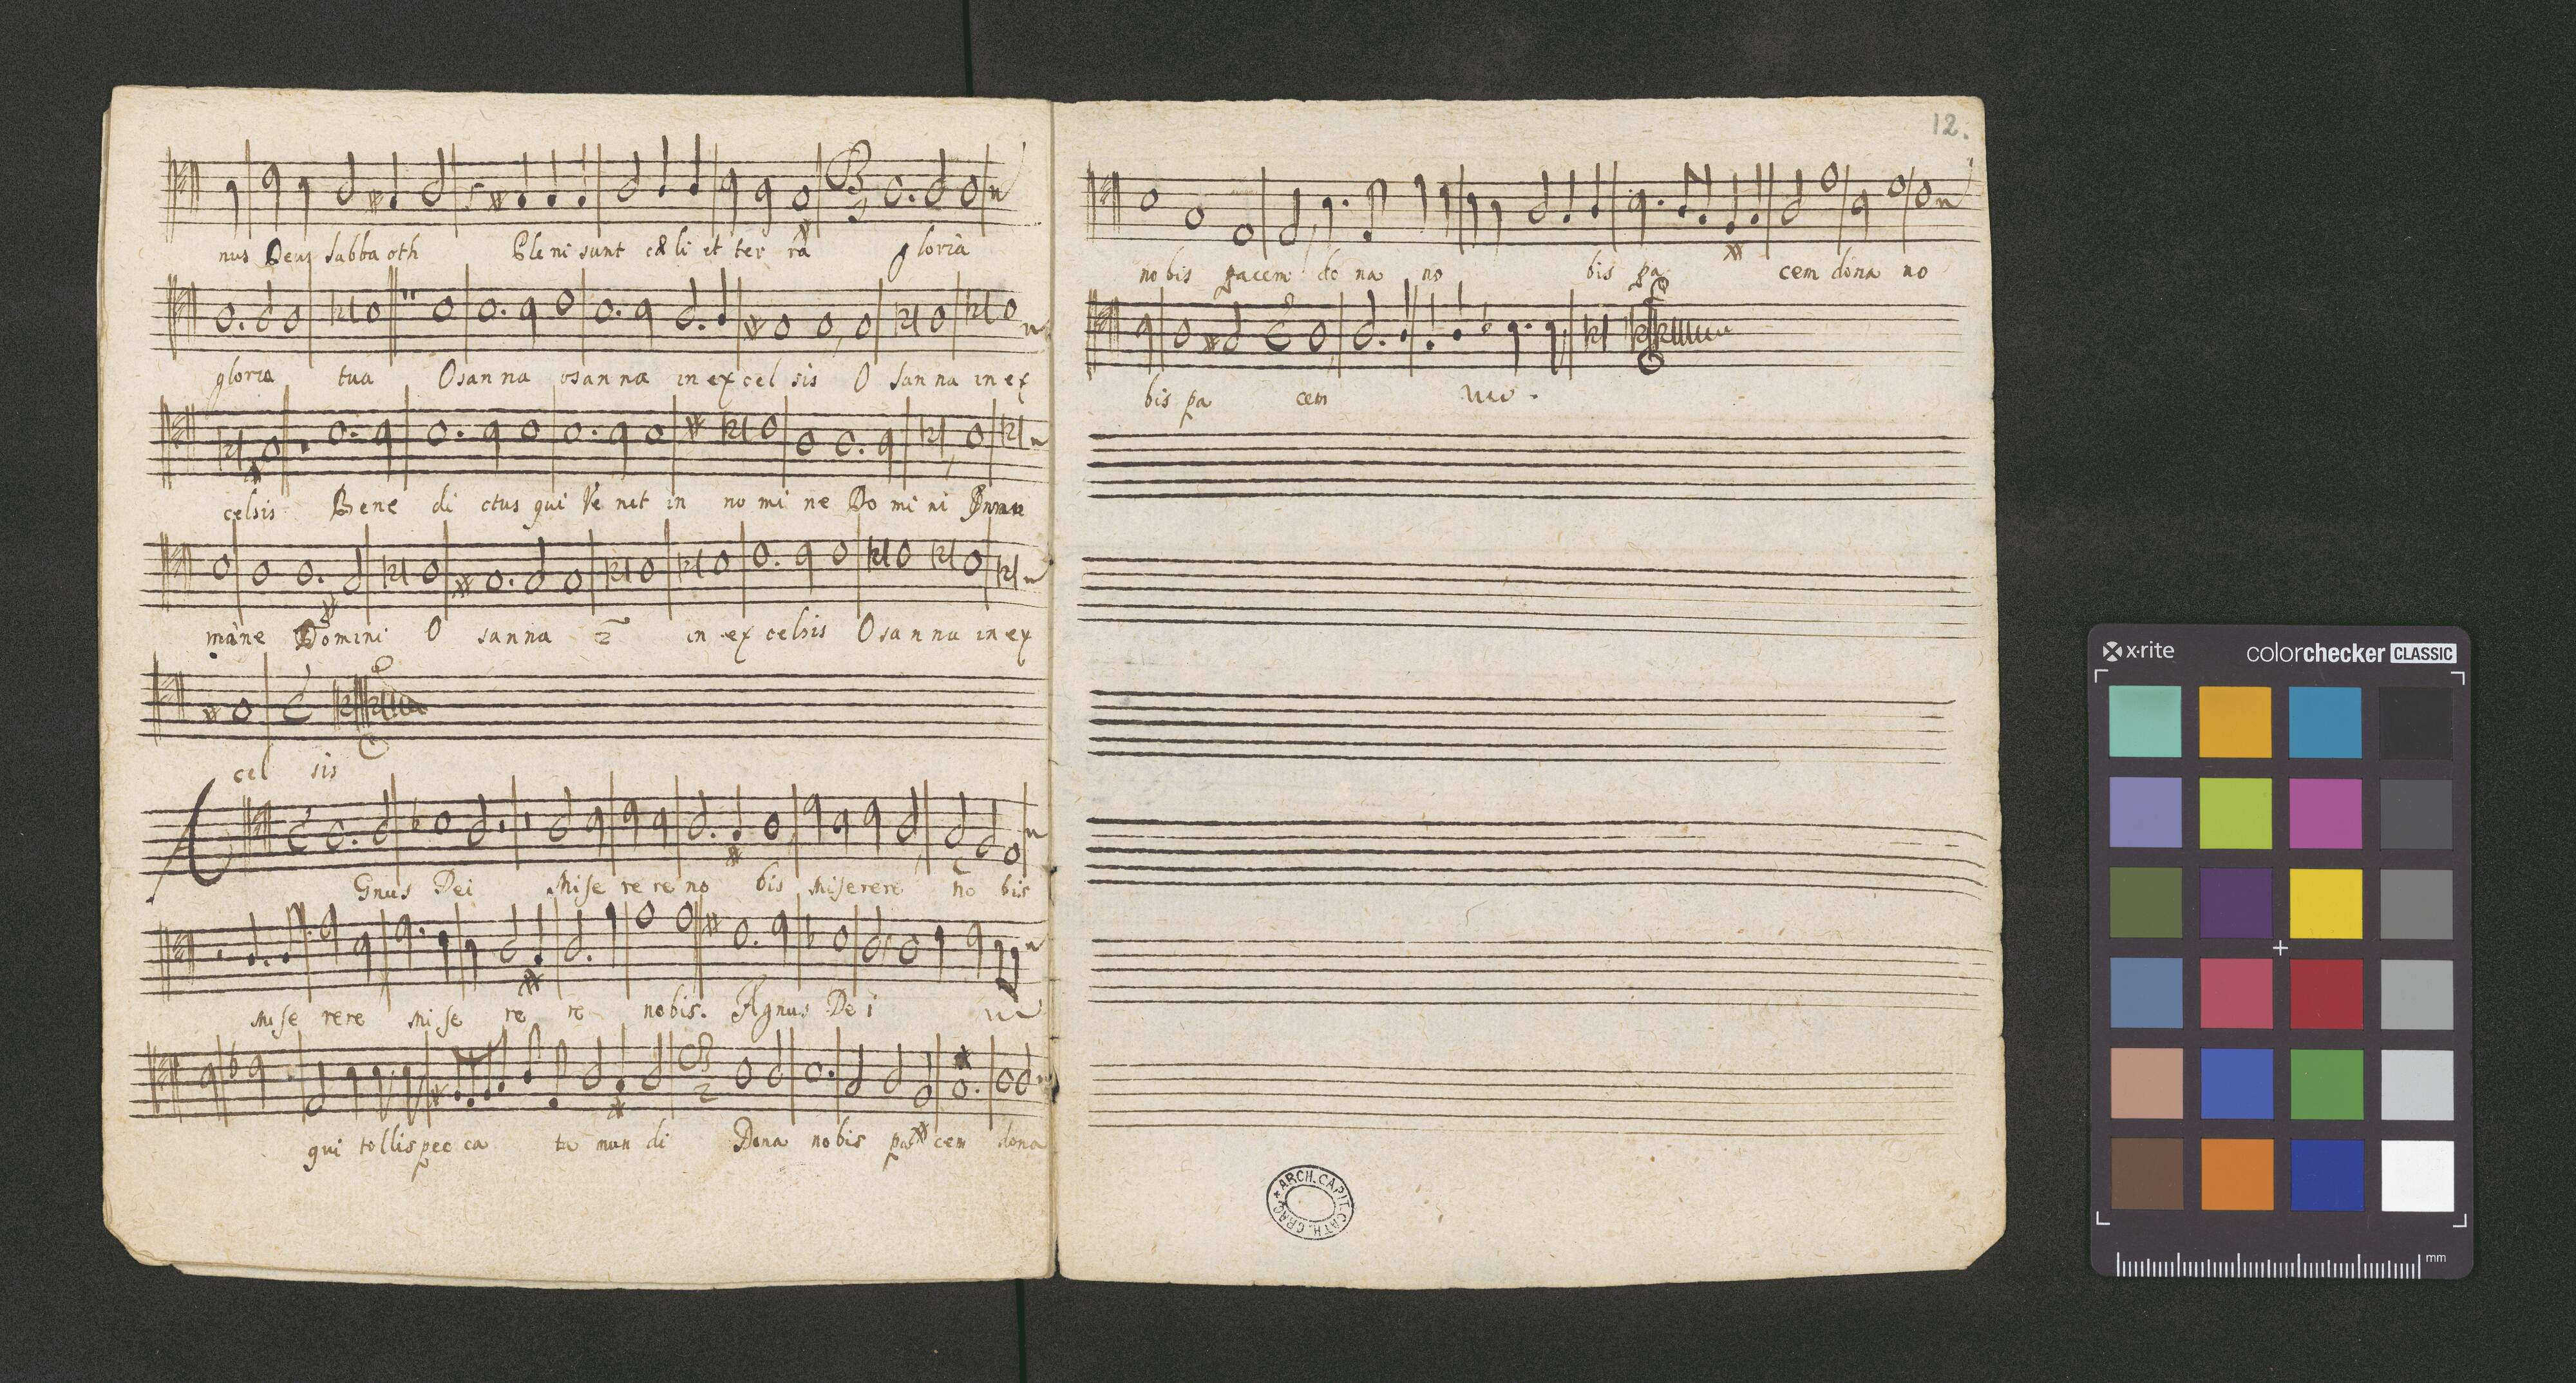 nus Deus sabba oth Ple ni sunt cæ li et ter ra gloria
gloria tua Osan na osan na in ex cel sis O san na in ex
celsis Bene di ctus qui Ve nit in no mi ne Do mi ni In no
mine Domini O sanna in ex celsis Osanna in ex
cel sis
Gnus Dei Mise re re no bis miserere no bis
Mise rere mi se re re nobis. Agnus De i
qui tollis pec ca ta mun di Dona nobis pa cem dona
12.
nobis pacem do na no bis pa cem dona no
bis pa cem
ARCH. CAPIT. CATH. CRAC.
x·rite colorchecker CLASSIC
mm